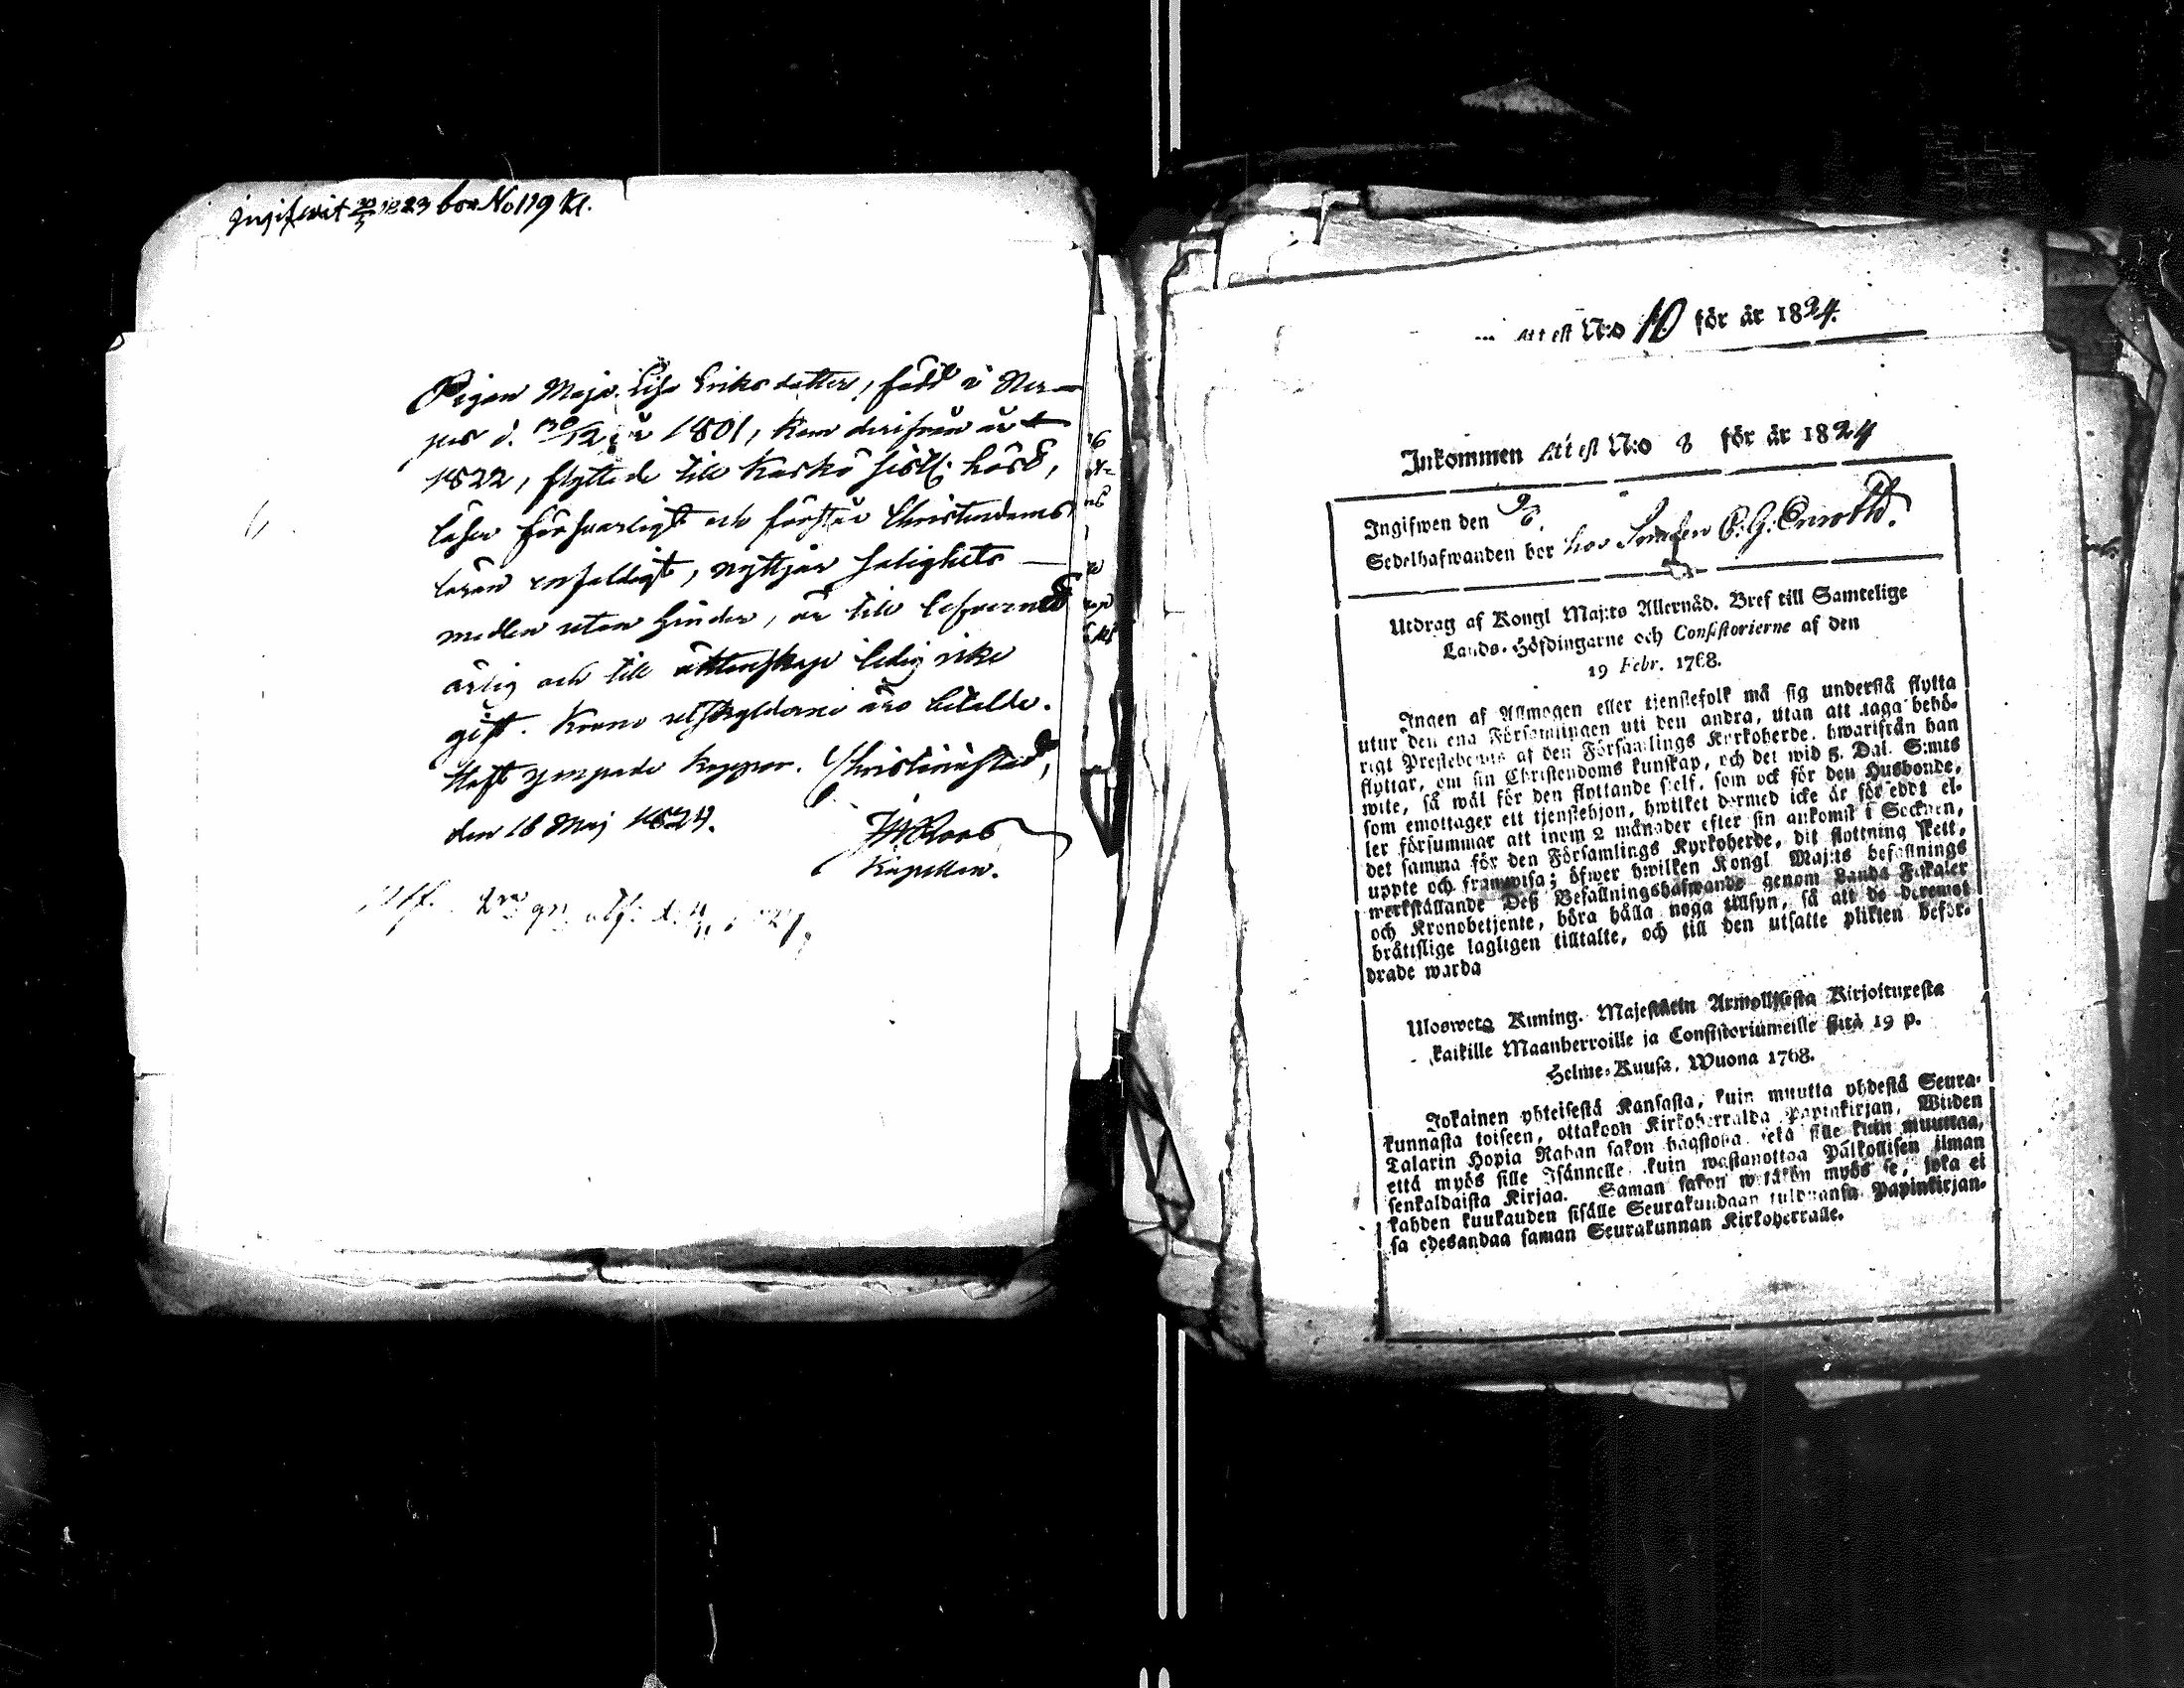 Ingifwit 20/5 1823 bor No 119 kl.
Pigan Maja Lisa Eriksdotter, född i Ner-
pes d. 30/12 år 1801, kom derifrån år
1822, flyttade till Kaskö sistl. höst,
läser försvarligt och förstår Christendoms
läran enfaldigt, nyttjar salighets
medlen utan hinder, är till lefvernet
ärlig och till äktenskap ledig icke
gift. Krono utskylderne äro betalde.
Haft ympade koppor. Christinestad,
den 18 Maj 1824.
Kapellan.
Attest N:o 10 för år 1824.
Inkommen Attest N:o 8 för år 1824
Ingifwen den 9/6.
Sedelhafwanden bor hos Smeden E. G. Enwald.
Utdrag af Kongl Maj:ts Allernåd. Bref till Samtelige
Lands-Höfdingarne och Consistorierne af den
19 Febr. 1768.
Ingen af Allmogen eller tjenstefolk må sig understå flytta
utur den ena Församlingen uti den andra, utan att taga behö-
rigt Prestebewis af den Församlings Kyrkoherde, hwarifrån han
flyttar, om sin Christendoms kunskap, och det wid 5. Dal. S:mts
wite, så wäl för den flyttande sjelf, som ock för den Husbonde,
som emottager ett tjenstehjon, hwilket dermed icke är försedt el-
ler försummar att inom 2 månader efter sin ankomst i Socknen,
det samma för den Församlings Kyrkoherde, dit flottning skett,
uppte och framwisa; öfwer hwilken Kongl Maj:ts befallnings
werkställande Deß Befallningshafwande genom Lands Fiskaler
och Kronobetjente, böra hålla noga tillsyn, så att de deremot
bråttslige lagligen tilltalte, och till den utsatte plikten beför-
drade warda
Uloswetg Kuning. Majestätin Armollisesta Kirjoituxesta
kaikille Maanherroille ja Consistoriumeille siitä 19 p.
Helme-Kuusa, Wuona 1768.
Jokainen yhteisestä Kansasta, kuin muutta yhdestä Seura-
kunnasta toiseen, ottakoon Kirkoherralda Papinkirjan, Wiiden
Talarin Hopia Rahan sakon haastolla, sekä sille kuin muuttaa,
että myös sille Isännelle, kuin wastanottaa Palkollisen ilman
senkaldaista Kirjaa. Saman sakon wetäkön myös se, joka ei
kahden kuukauden sisälle Seurakundaan tulduansa Papinkirjan-
sa edesandaa saman Seurakunnan Kirkoherralle.